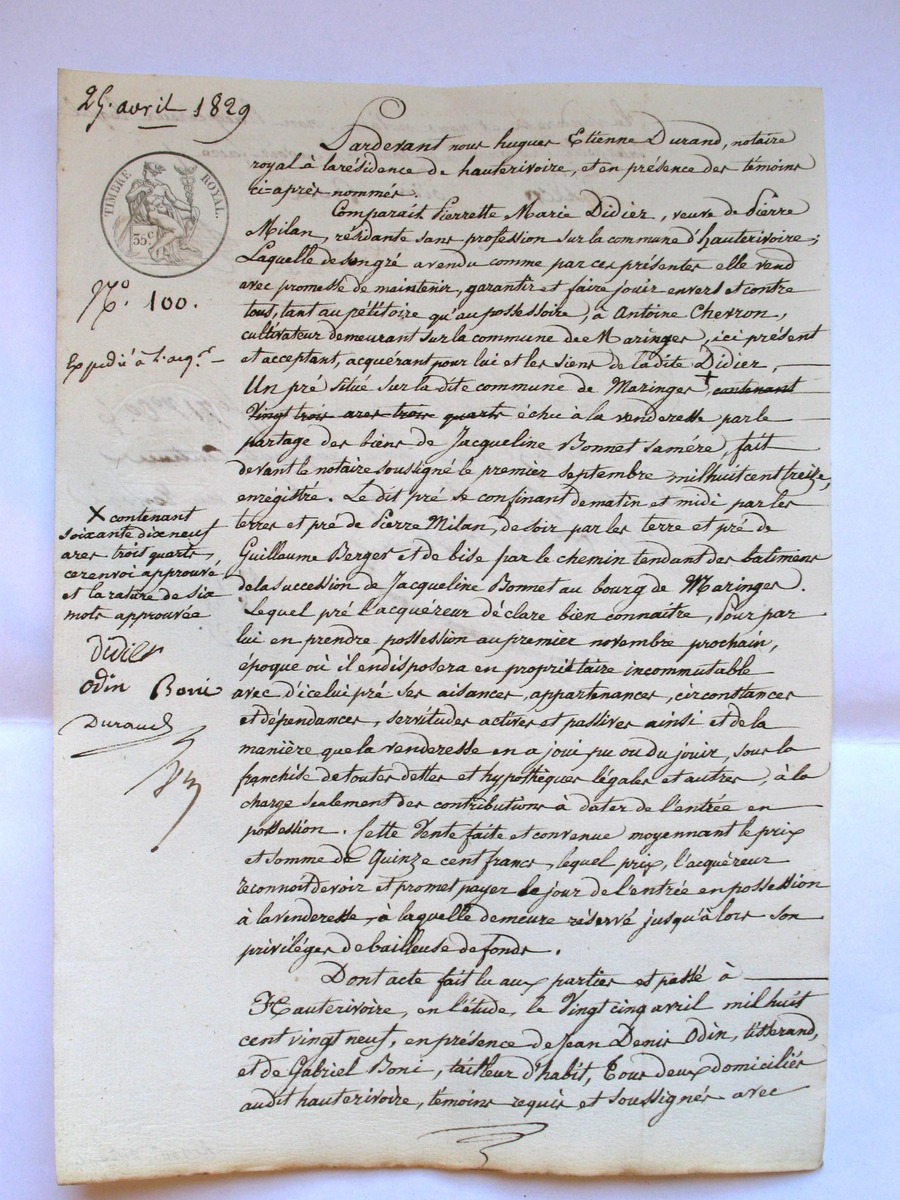 25. avril 1829
TIMBRE ROYAL.
35 c
N.o 100.
Expédié à l'acq.r
Pardevant nous hugues Etienne Durand, notaire
royal à la résidence de hauterivoire, et en présence des témoins
ci-après nommés.
Comparait Pierrette Marie Didier, veuve de Pierre
Milan, résidante sans profession sur la commune d'hauterivoire;
Laquelle de son gré a vendu comme par ces présentes elle vend
avec promesse de maintenir, garantir et faire jouir envers et contre
tous, tant au pétitoire qu'au possessoire, à Antoine Chevron,
cultivateur demeurant sur la commune de Maringes, ici présent
et acceptant, acquérant pour lui et les siens de la dite Didier,
Un pré situé sur la dite commune de Maringes + contenant
Vingt trois ares trois quarts échu à la venderesse par le
partage des biens de Jacqueline Bonnet sa mére, fait
devant le notaire soussigné le premier septembre mil huit cent treize,
enregistré. Le dit pré se confinant de matin et midi par les
terres et pré de Pierre Milan, de soir par les terre et pré de
Guillaume Berger et de bise par le chemin tendant des batimens
de la succession de Jacqueline Bonnet au bourg de Maringes.
Lequel pré l'acquéreur déclare bien connaitre, Pour par
lui en prendre possession au premier novembre prochain,
époque où il en disposera en propriétaire incommutable
avec d'icelui pré ses aisances, appartenances, circonstances
et dépendances, servitudes actives et passives ainsi et de la
manière que la venderesse en a joui pu ou du jouir, sous la
franchise de toutes dettes et hypothèques légales et autres, à la
charge seulement des contributions à dater de l'entrée en
possession. Cette Vente faite et convenue moyennant le prix
et somme de Quinze cent francs, lequel prix, l'acquéreur
reconnoit devoir et promet payer le jour de l'entrée en possession
à la venderesse, à laquelle demeure réservé jusqu'à lors son
privilége de bailleuse de fonds.
Dont acte fait lu aux parties et passé à
Hauterivoire, en l'étude, le Vingt cinq avril mil huit
cent vingt neuf, en présence de Jean Denis Odin, tisserand,
et de Gabriel Boni, tailleur d'habit, Tous deux domiciliés
audit hauterivoire, témoins requis et soussignés avec
X contenant
soixante dix neuf
ares trois quarts,
ce renvoi approuvé
et la rature de six
mots approuvée
didier
odin Boni
Durand